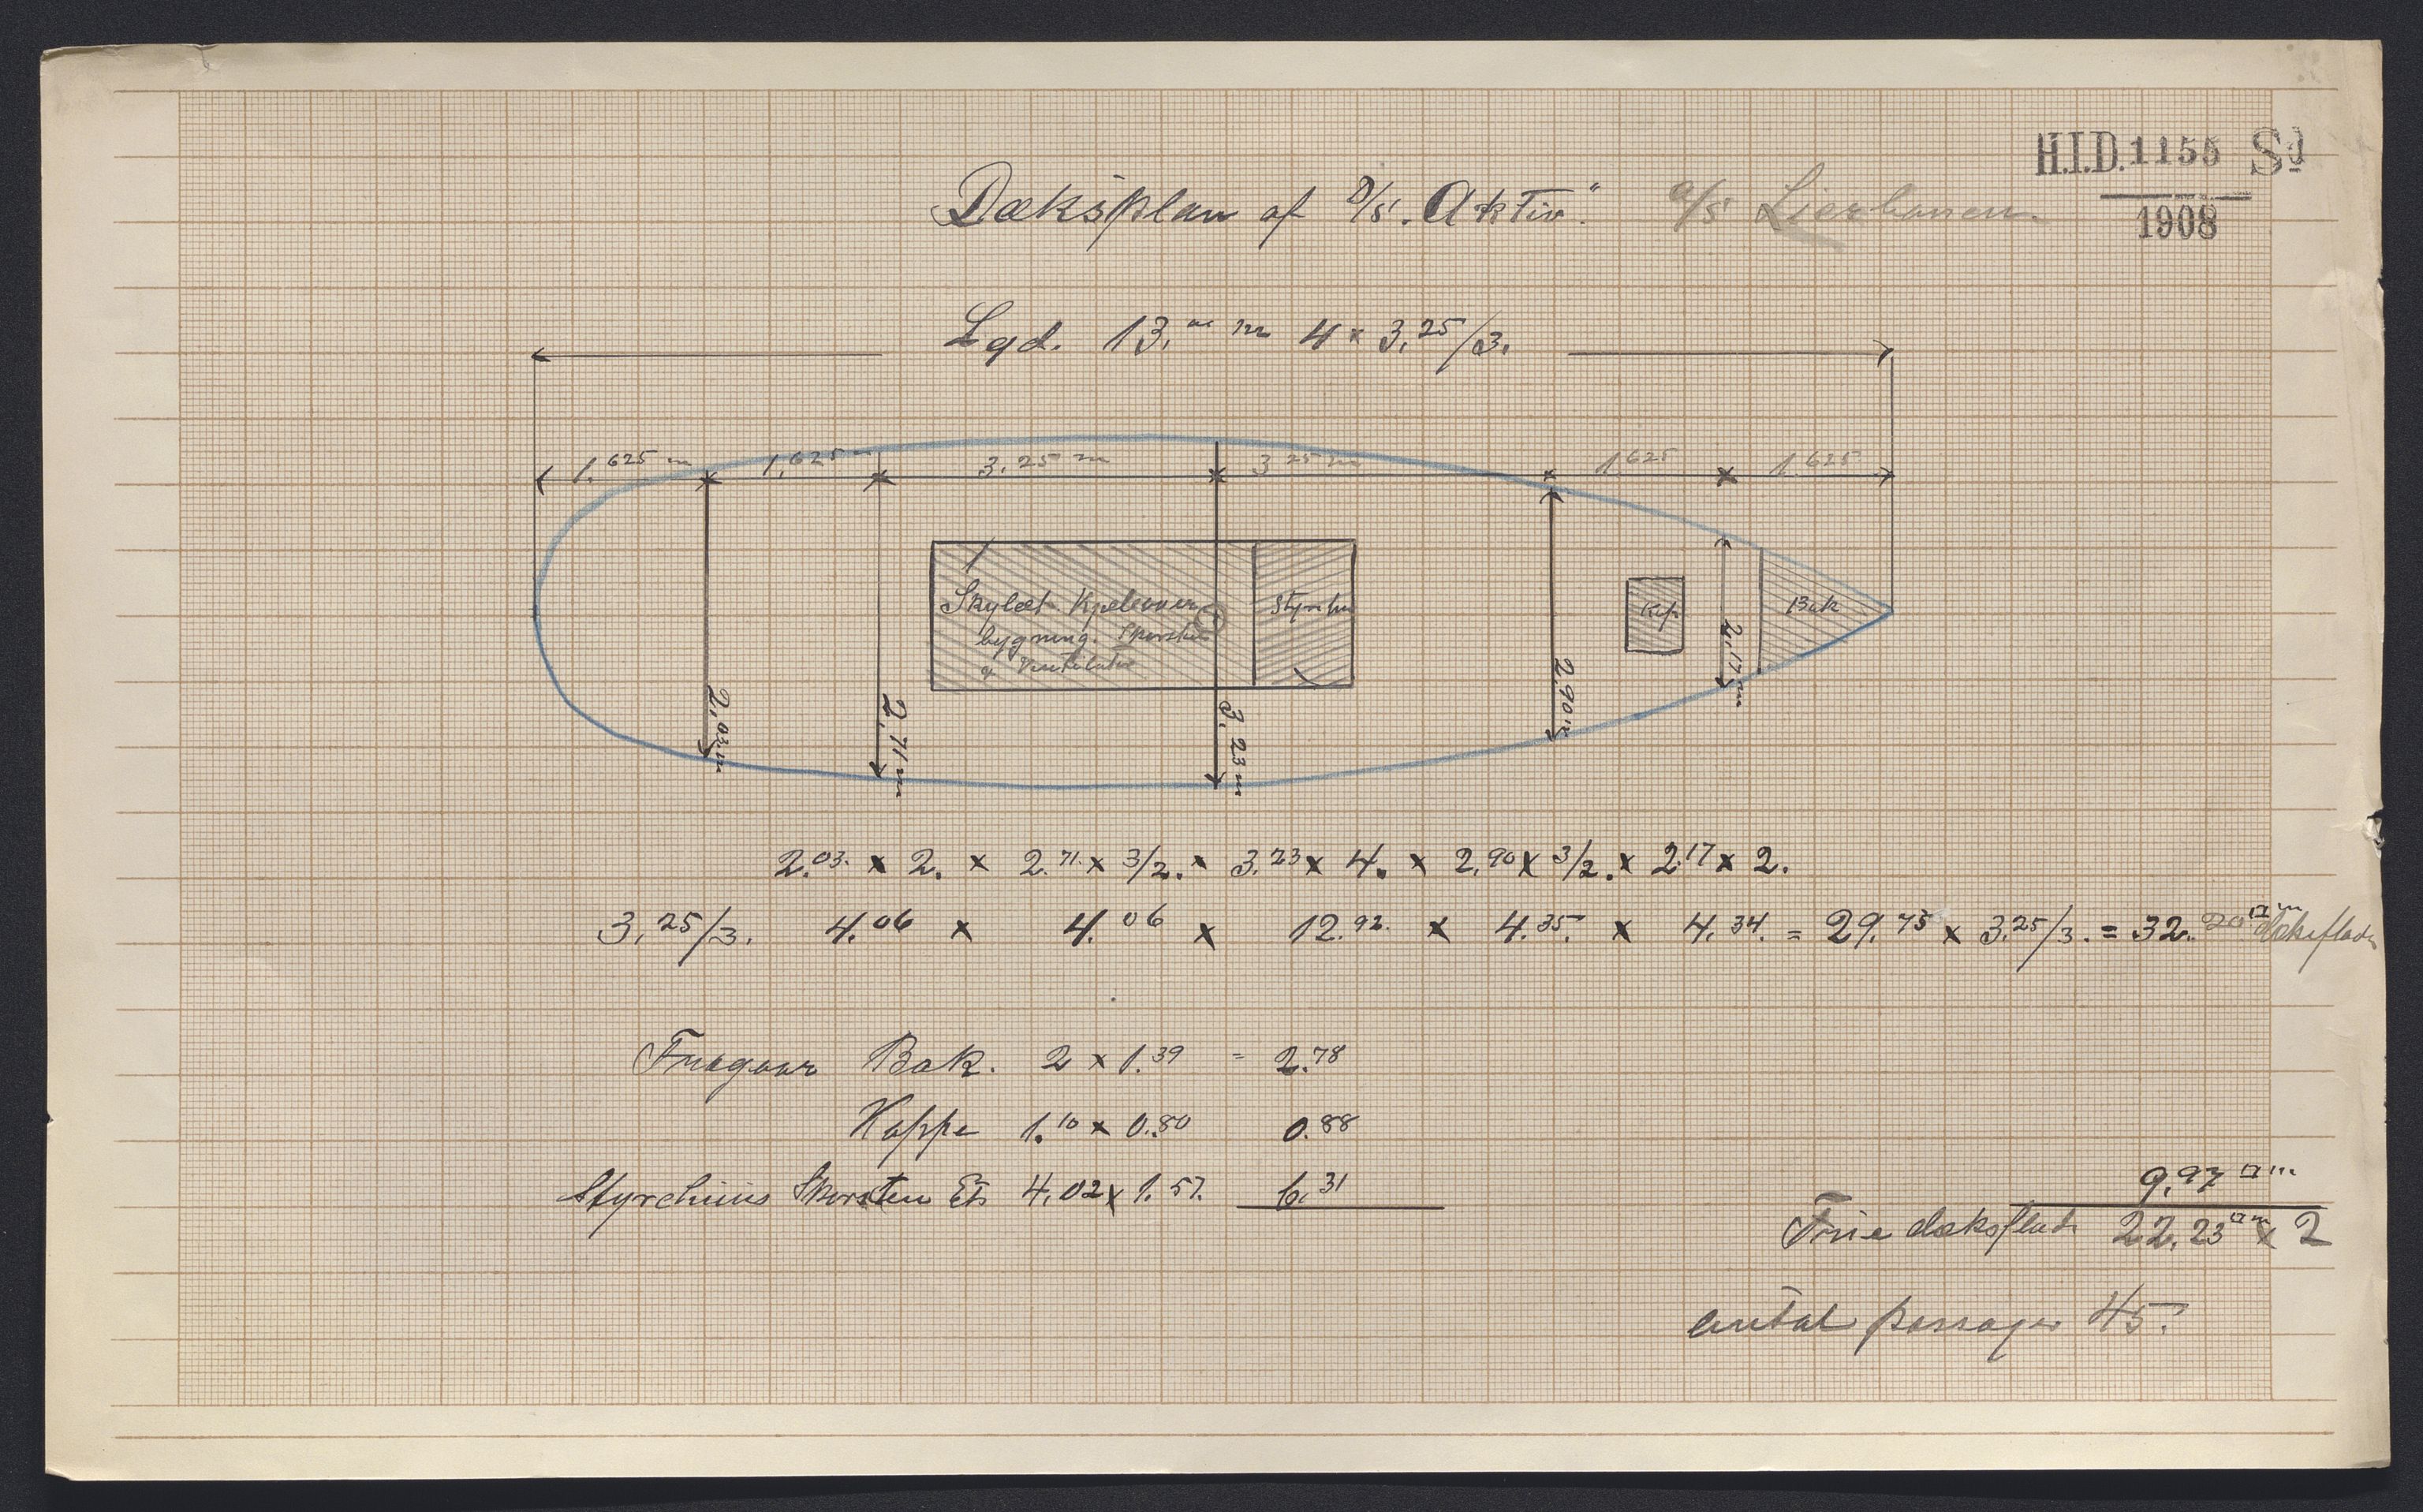 H.I.D. 1155 Sd
1908
Dæksplan af D/S. "Aktiv." a/s Lierbanen.
Lgd. 13.00 m 4 x 3.25/3.
1.625 m 1.625 m 3.25 m 3.25 m 1.625 1.625
Skylcet Kjelover
bygning. Skorsten
og Ventilator
Styrehu
Kap
Bak
2,03 m
2,71 m
3,23 m
2,90 m
2,17 m
2.03. x 2. x 2.71. x 3/2. x 3.23 x 4. x 2.90 x 3/2. x 2.17 x 2.
3.25/3. 4.06 x 4.06 x 12.92. x 4.35. x 4.34. = 29.73 x 3.25/3. = 32.20 □m Dæksflade
Fragaar Bak. 2 x 1.39 = 2.78
Kappe 1.10 x 0.80 0.88
Styrehuus Skorsten Etc 4,02 x 1.57. 6.31
9,97 □m
Frie dæksflade 22,23 □m x 2
antal passager 45.